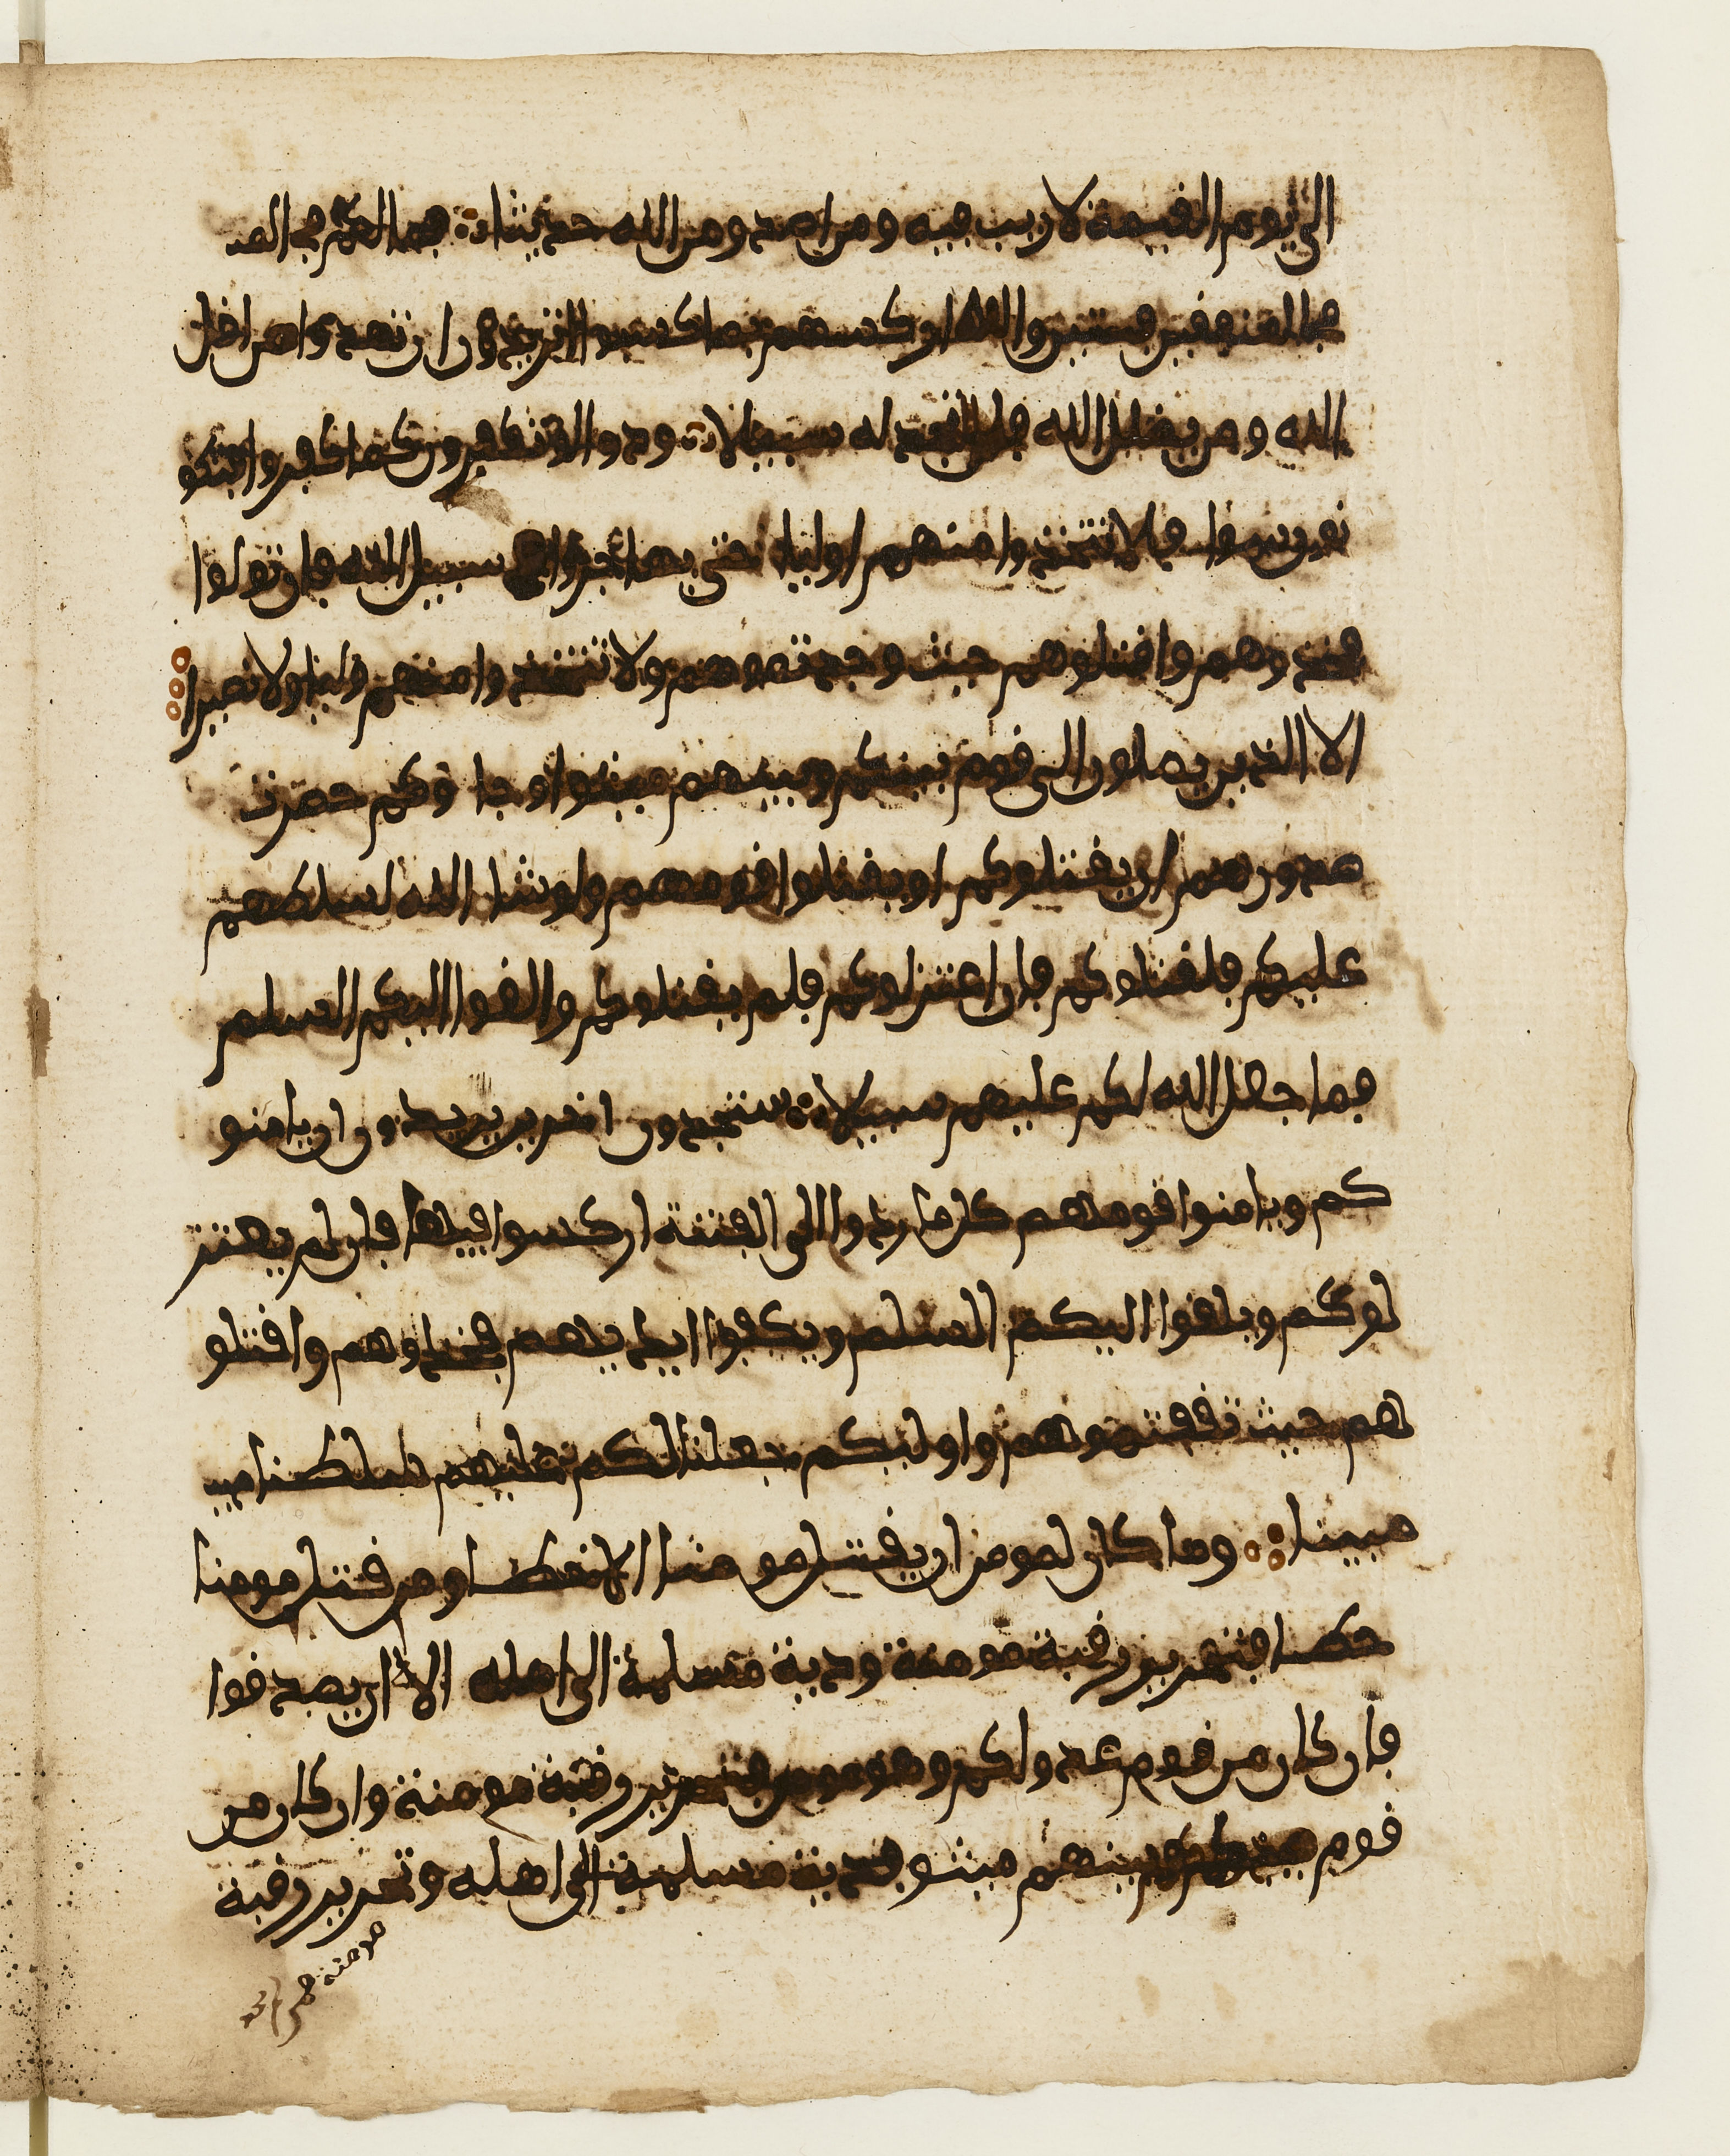 الى يوم القيمة لا ريب فيه ومن اصدو من الله حديثا فما لكم في المـ
في المنفقين فيتين والله اركسهم بما كسبوا اتريدون ان تهدوا من اضل
الله ومن يضلل الله فلن تجد له سبيلا ودوا لو تكفرون كما كفروا فتكو
نون سوا فلا تتخذوا منهم اوليا حتى يهاجروا في سبيل الله فان تولوا
فخذوهم واقتلوهم حيث وجدتموهم ولا تتخذوا منهم وليا ولا نصيرا
الا الذين يصلون الى قوم بينكم وبينهم ميثق او جا وكم حصرت
صدورهم ان يقتلوكم او يقتلوا قومهم ولو شا الله لسلطهم
عليكم فلقتلوكم فان اعتزلوكم فلم يقتلوكم والقوا اليكم السلم
فما جعل الله لكم عليهم سبيلا ستجدون اخرين يريدون ان يامنو
كم ويامنوا قومهم كل ما ردوا الى الفتنة اركسوا فيها فان لم يعتز
لوكم ويلقوا اليكم السلم ويكفوا ايديهم فخذوهم واقتلو
هم حيث ثقفتموهم واوليكم جعلنا لكم عليهم سلطنا
مبينا وما كان لمومن ان يقتل مومنا الا خطـا ومن قتل مومنا
خطـا فتحرير رقبة مومنة ودية مسلمة الى اهله الا ان يصدقوا
فان كان من قوم عدو لكم وهو مومن فتحرير رقبة مومنة وان كان من
قوم بينكم وبينهم ميثق فدية مسلمة الى اهله وتحرير رقبة
مومنة فمن لم يجد